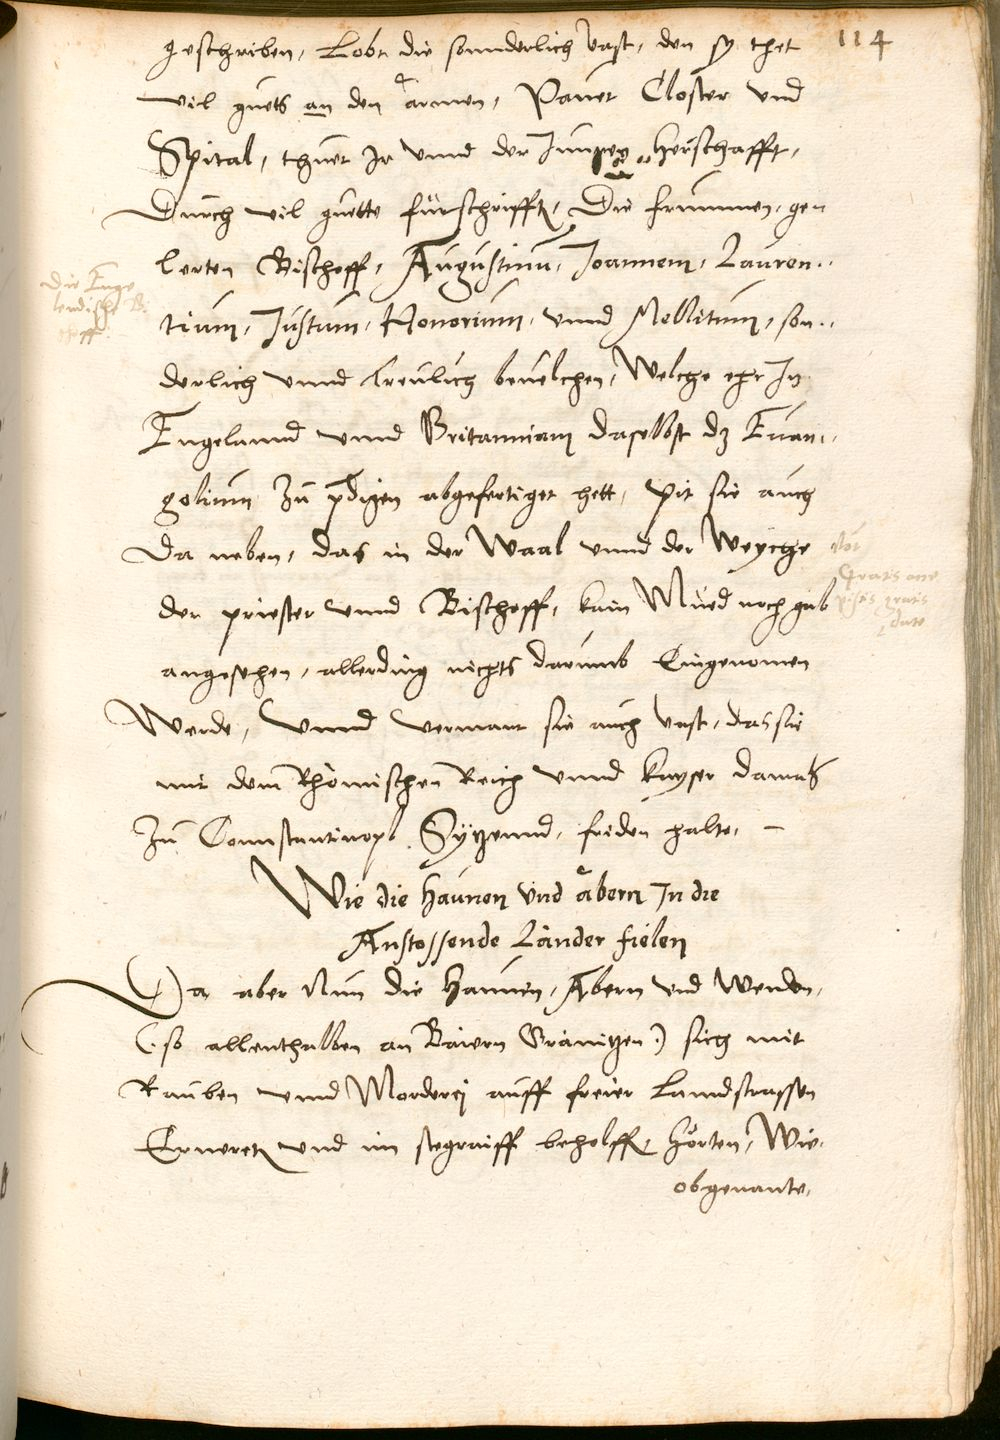 114
geschriben, Lobt die sonnderlich vast, den sy thet
vil guets an den armen, Pauet Closter vnd
Spital, thuet Ir vnnd der Jungen herschafft,
Durch vil guette fürschrifft, Die frummen, gen
lerten Bischoff, Augustinu, Joannem, Lauren..
tium, Justum, Honorium, vnnd Mellitum, son..
derlich vnnd treulich beuelchen, Welche ehr In
Engelannd vnnd Britanniam daselbst dz Euan..
gelium Zu pdigen abgefertiget hett, Pit sie auch
Da neben, das in der Waal vnnd der Weyche
der priester vnnd Bischoff, kain Mued noch gab
angesehen, allerding nichts darumb Eingenomen
Werde, Vnnd vermant sie auch vast, das sie
mit dem Rhömischen Reich vnnd kayser damals
Zu Connstantinopl Sytzennd, friden halte,
Wie die Haunen vnd Abern In die
Anstossende Länder fielen
Da aber Nun die Haunen, Abern vnd Wenden,
(so allenthalben an Baiern Gränitzen) sich mit
Rauben vnnd Morderej auff freier Lanndstrassen
Erneret vnd im stegraiff beholff Hörten, Wie
obgenante,
Die Enge
lendische Bi
schoff
gratis
date